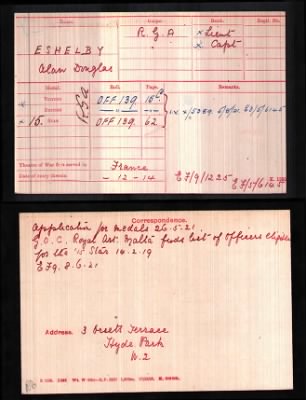 Name. Corps. Rank. Regtl. No.
ESHELBY R.G.A x Lieut
Alan Douglas x Capt
Medal. Roll. Page. Remarks.
x Victory OFF 139 15
British —"— —"—
x 15 Star OFF 139 62
RGA
Theatre of War first served in France
Date of entry therein - 12 - 14
E7/9/1225
E7/5/6145
K. 1380
Correspondence.
Application for medals 26.5.21
G.O.C. Royal Art. Malta fwds list of Officers eligible
for the '15 Star 14.2.19
EF9. 8.6.21
Address. 3 Terrace
Hyde Park
W.2